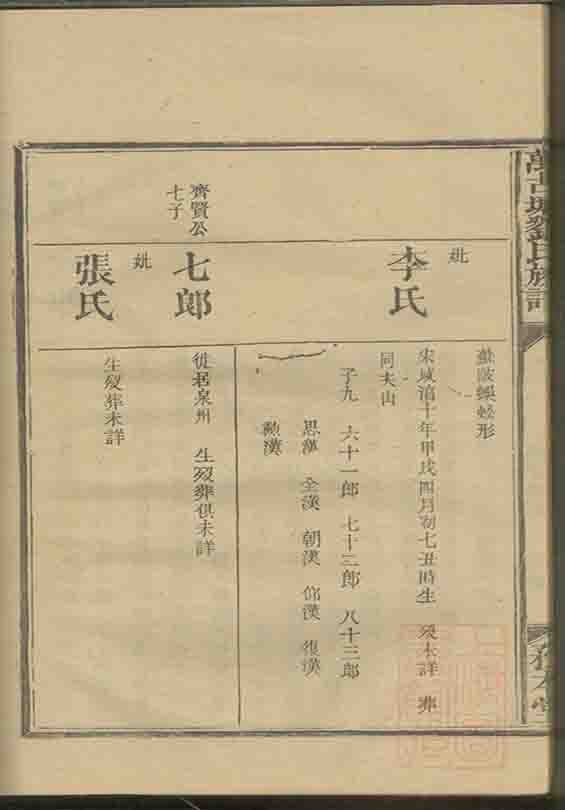 劉氏族譜
妣
李氏
蜈蚣形
宋咸淳十年甲戌四月初七丑時生 歿未詳 葬
同夫山
子九 六十一郎 七十三郎 八十三郎
思漢 全漢 朝漢 仰漢 復漢
勲漢
齊賢公
七子
七郎
徙居泉州 生歿葬俱未詳
妣
張氏
生歿葬未詳